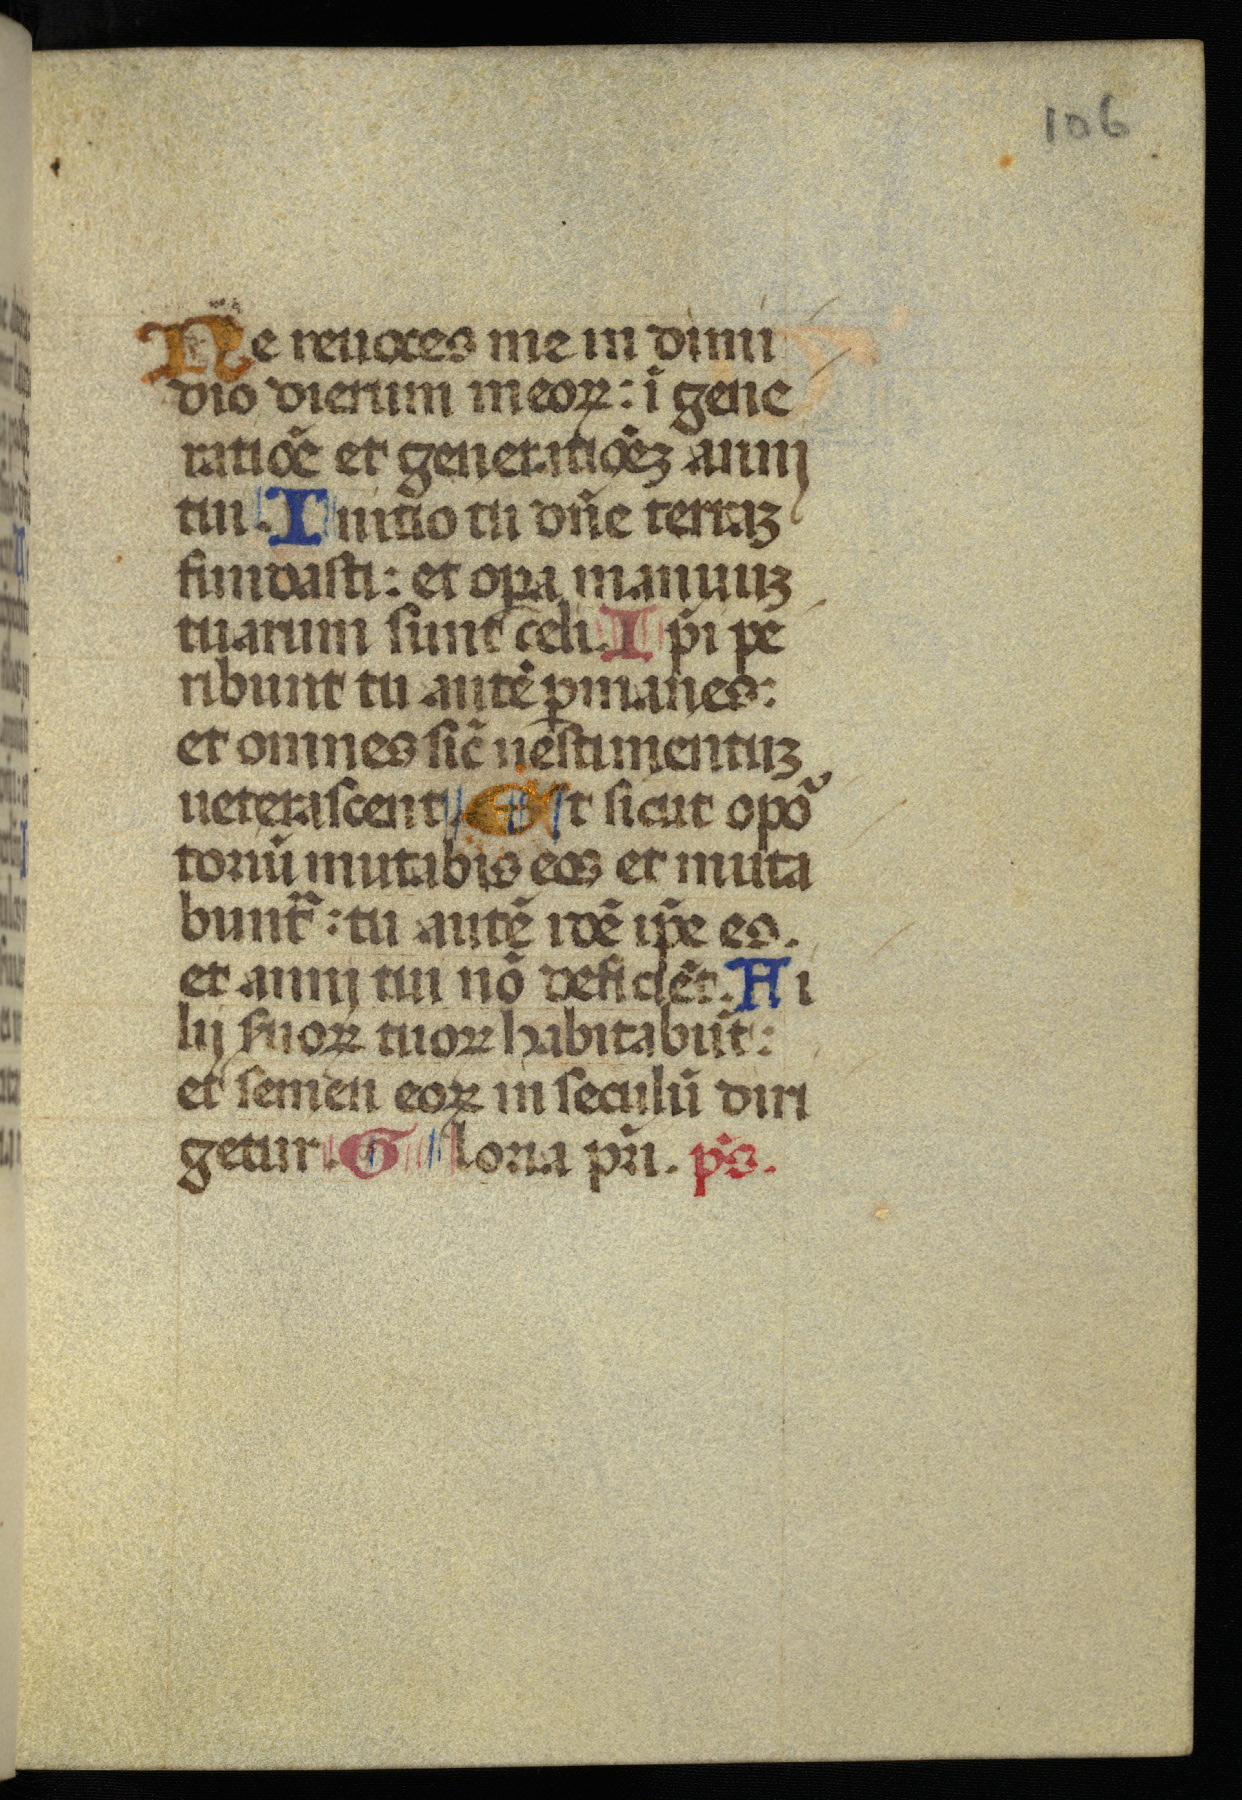 106
Ne reuoces me in dimi
dio dierum meoꝝ: ī gene
ratiōe et generatiōeꝫ annij
tui. Initio tu dñe terraꝫ
fundasti: et oꝑa manuuꝫ
tuarum sunt celi. Ip̄i pe
ribunt tu autē ꝑmanes:
et omnes sic̄ uestimentuꝫ
ueterascent. Et sicut opo
toriū mutabis eos et muta
bunt᷑: tu autē idē ip̄e es.
et annij tui nō deficiēt. Fi
lij suoꝝ tuoꝝ habitabūt:
et semen eoꝝ in seculū diri
getur. Gloria pr̄i. p̄s.